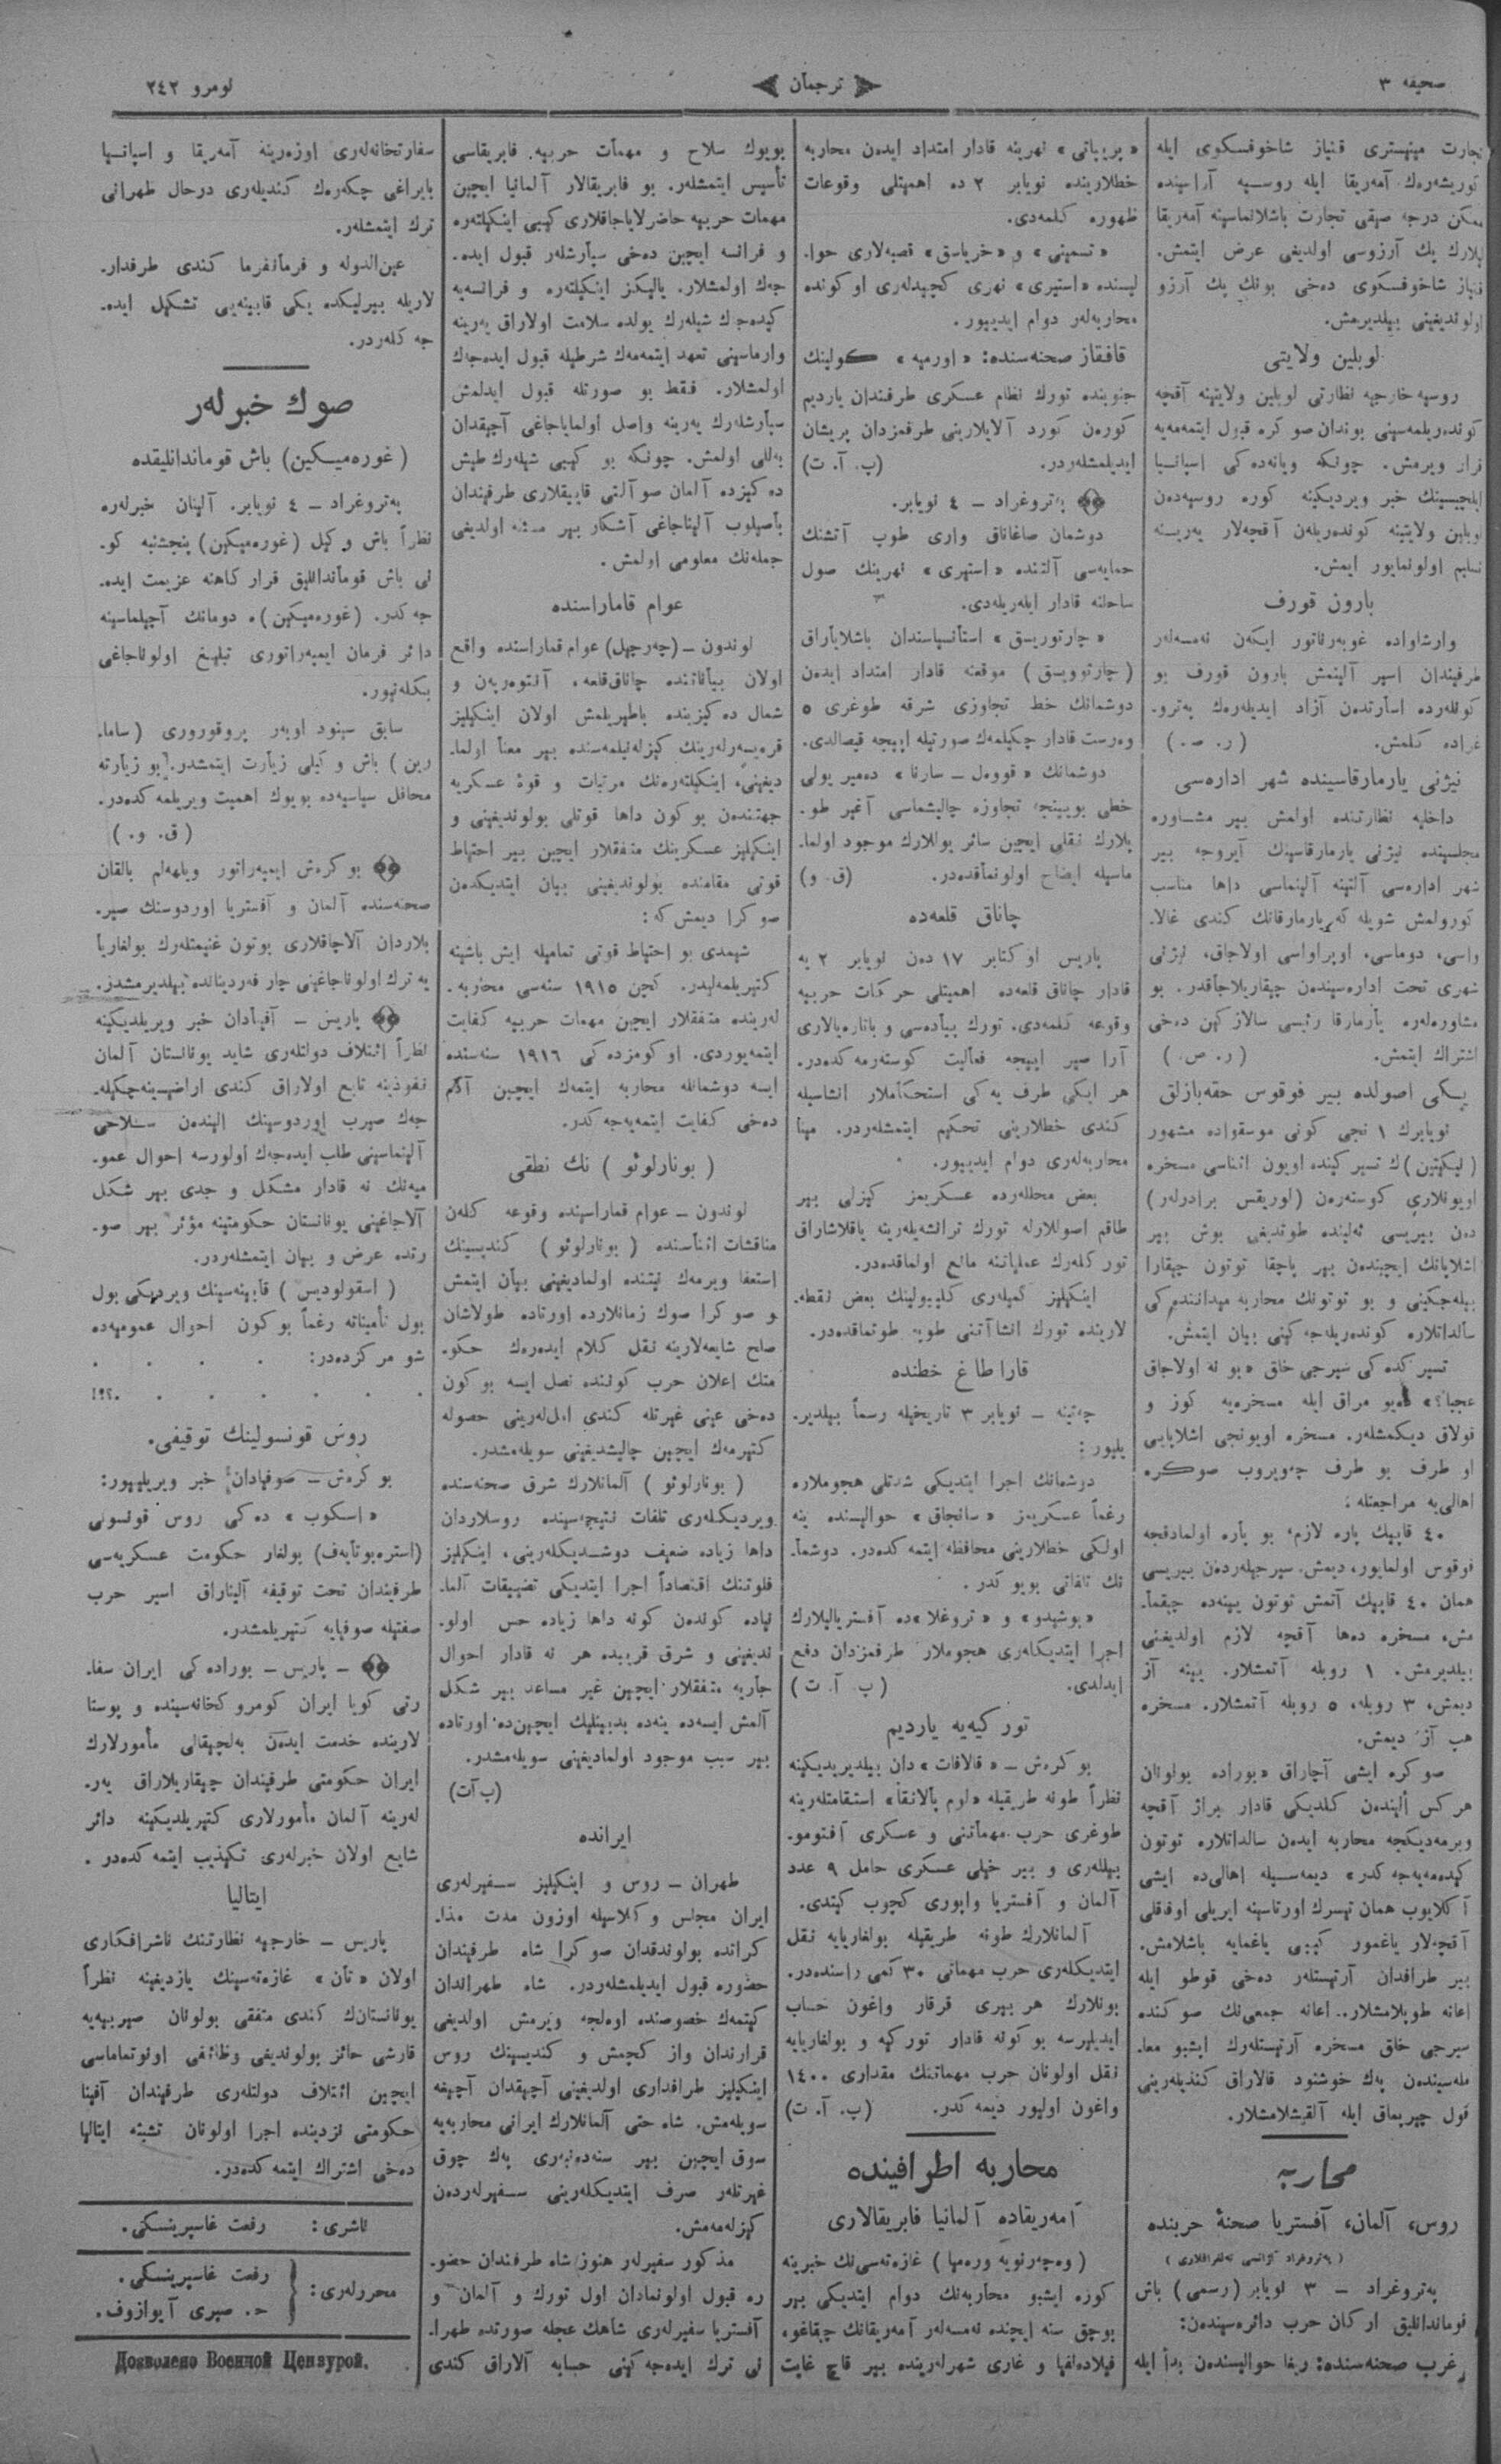 صحیفه ۳
ترجمان
نومرو ۲٤۲
تجارت مینیستری قنیاز شاخوفسکوی ایله
کوریشه‌رك آمه‌ریقا ایله روسیه آراسینده
ممکن درجه صیقی تجارت باشلانماسینه آمه‌ریقا
لیلارك پك آرزوسی اولدیغی عرض ایتمش.
قنیاز شاخوفسکوی ده‌خی بونك پك آرزو
اولوندیغینی بیلدیرمش.
لوبلین ولایتی
روسیه خارجیه نظارتی لوبلین ولایتینه آقچه
کونده‌ریلمه‌سینی بوندان صوکره قبول ایتمه‌مه‌یه
قرار ویرمش. چونکه ویانه‌ده‌کی اسپانیا
ایلچیسینك خبر ویردیکینه کوره روسیه‌دن
لوبلین ولایتینه کونده‌ریله‌ن آقچه‌لار یه‌رینه
تسلیم اولونمایور ایمش.
بارون قورف
وارشاواده غوبه‌رناتور ایکه‌ن نه‌مسه‌لر
طرفیندان اسیر آلینمش بارون قورف بو
کونله‌رده اسارتده‌ن آزاد ایدیله‌ره‌ك په‌ترو-
غراده کلمش. (ر. ص.)
نیژنی یارمارقاسینده شهر اداره‌سی
داخلیه نظارتنده اولمش بیر مشاوره
مجلسینده نیژنی یارمارقاسینك آیروجه بیر
شهر اداره‌سی آلتینه آلینماسی داها مناسب
کورولمش شویله که یارمارقانك کندی غالا-
واسی، دوماسی، اوپراواسی اولاجاق، نیژنی
شهری تحت اداره‌سیندن چیقاریلاجاقدر. بو
مشاوره‌له‌ره یارمارقا رئیسی سالازکین ده‌خی
اشتراك ایتمش. (ر. ص.)
یکی اصولده بیر فوقوس حقه‌بازلق
نویابرك ۱ نجی کونی موسقواده مشهور
(نیکیتین)ك تسیرکینده اویون اثناسی مسخره
اویونلاری کوسته‌ره‌ن (لوریقس برادرلر)
دن بیریسی ئه‌لینده طوتدیغی بوش بیر
اشلاپانك ایچینده‌ن بیر پاچقا توتون چیقارا
بیله‌جکینی و بو توتونك محاربه میداننده‌کی
سالداتلاره کونده‌ریله‌جه‌کینی بیان ایتمش.
تسیرکده‌کی سیرجی خلق «بو نه اولاجاق
عجبا؟» دیو مراق ایله مسخره‌یه کوز و
قولاق دیکمشله‌ر. مسخره اویونجی اشلاپایی
او طرف بو طرف چه‌ویروب صوکره
اهالی‌یه مراجعتله:
٤۰ قاپیك پاره لازم، بو پاره اولمادقجه
فوقوس اولمایور، دیمش. سیرجیله‌رده‌ن بیریسی
همان ٤۰ قاپیك آتمش توتون یینه‌ده چیقما-
مش، مسخره ده‌ها آقچه لازم اولدیغینی
بیلدیرمش. ۱ روبله آتمشلار. یینه آز
دیمش، ۳ روبله، ٥ روبله آتمشلار. مسخره
هپ آز دیمش.
صوکره ایشی آچاراق «بوراده بولونان
هرکس ألینده‌ن کلدیکی قادار بیراز آقچه
ویرمه‌دیکجه محاربه ایده‌ن سالداتلاره توتون
کیده‌مه‌یه‌جه‌کدر» دیمه‌سیله اهالی‌ده ایشی
آکلایوب همان تسیرك اورتاسینه ایریلی اوفاقلی
آقچه‌لار یاغمور کیبی یاغمایه باشلامش.
بیر طرافدان آرتیستله‌ر ده‌خی قوطو ایله
اعانه طوپلامشلار.. اعانه جمعی‌نك صوکنده
سیرجی خلق مسخره آرتیستله‌رك ایشبو معا-
مله‌سینده‌ن پك خوشنود قالاراق کندیله‌رینی
قول چیرپماق ایله آلقیشلامشلار.
محاربه
روس، آلمان، آفستریا صحنهٔ حربنده
(په‌تروغراد آژانسی ته‌لغرافلاری)
په‌تروغراد - ۳ نویابر (رسمی) باش
قوماندانلیق ارکان حرب دائره‌سیندن:
غرب صحنه‌سنده: ریغا حوالیسنده‌ن بدأ ایله
«پریپاتی» نهرینه قادار امتداد ایده‌ن محاربه
خطلارینده نویابر ۲ ده اهمیتلی وقوعات
ظهوره کلمه‌دی.
«تسمینی» و «خریاسق» قصبه‌لاری حوا-
لیسنده «استیری» نهری کچیدله‌ری اوکونده
محاربه‌له‌ر دوام ایدییور.
قافقاز صحنه‌سنده: «اورمیه» کولینك
جنوبنده تورك نظام عسکری طرفندان یاردیم
کوره‌ن کورد آلایلارینی طرفمزدان پریشان
ایدیلمشله‌ردر. (پ. آ. ت)
په‌تروغراد - ٤ نویابر.
دوشمان صاغاناق واری طوپ آتشنك
حمایه‌سی آلتنده «استیری» نهرینك صول
ساحلنه قادار ایله‌ریله‌دی.
«چارتوریسق» استانسیاسندان باشلایاراق
(چارتوویسق) موقعنه قادار امتداد ایده‌ن
دوشمانك خط تجاوزی شرقه طوغری ٥
وه‌رست قادار چکیلمه‌ك صورتیله ایپیجه قیصالدی.
دوشمانك «قووه‌ل - سارنا» ده‌میر یولی
خطی بویینجه تجاوزه چالیشماسی آغیر طو-
پلارك نقلی ایچین سائر یوللارك موجود اولما-
ماسیله ایضاح اولونماقده‌در. (ق. و)
چاناق قلعه‌ده
پاریس اوکتابر ۱۷ دن نویابر ۲ یه
قادار چاناق قلعه‌ده اهمیتلی حرکات حربیه
وقوعه کلمه‌دی. تورك پیاده‌سی و باتاره‌یالاری
آرا صیر ایپیجه فعالیت کوسته‌رمه‌کده‌در.
هر ایکی طرف یه‌کی استحکاملار انشاسیله
کندی خطلارینی تحکیم ایتمشله‌ردر. مینا
محاربه‌له‌ری دوام ایدییور.
بعض محلله‌رده عسکریمز کیزلی بیر
طاقم اصوللارله تورك ترانشه‌یله‌رینه یاقلاشاراق
تورکله‌رك عملیاتنه مانع اولماقده‌در.
اینکیلیز کمیله‌ری گلیبولینك بعض نقطه-
لارینده تورك انشاآتنی طوپه طوتماقده‌در.
قارا طاغ خطنده
چه‌تینه - نویابر ۳ تاریخیله رسماً بیلدیر-
یلیور:
دوشمانك اجرا ایتدیکی شدتلی هجوملاره
رغماً عسکریمز «سانجاق» حوالیسنده ینه
اولکی خطلارینی محافظه ایتمه‌کده‌در. دوشما-
نك تلفاتی بویوکدر.
«بوشیدو» و «تروغلا»ده آفستریالیلارك
اجرا ایتدیکله‌ری هجوملار طرفمزدان دفع
ایدلدی. (پ. آ. ت)
تورکیه‌یه یاردیم
بوکره‌ش - «قالافات» دان بیلدیریدیکینه
نظراً طونه طریقیله «لوم پالانقا» استقامتله‌رینه
طوغری حرب مهماتنی و عسکری آفتومو-
بیلله‌ری و بیر خیلی عسکری حامل ۹ عدد
آلمان و آفستریا واپوری کچوب کیتدی.
آلمانلارك طونه طریقیله بولغاریایه نقل
ایتدیکله‌ری حرب مهماتی ۳۰ کمی راسنده‌در.
بونلارك هر بیری قرقار واغون حساب
ایدیلیرسه بو کونه قادار تورکیه و بولغاریایه
نقل اولونان حرب مهماتنك مقداری ۱٤۰۰
واغون اولیور دیمه‌کدر. (پ. آ. ت)
محاربه اطرافینده
آمه‌ریقاده آلمانیا فابریقالاری
(وه‌چه‌رنویه وره‌میا) غازه‌ته‌سی‌نك خبرینه
کوره ایشبو محاربه‌نك دوام ایتدیکی بیر
بوچق سنه ایچنده نه‌مسه‌لر آمه‌ریقانك چیقاغو،
فیلاده‌لفیا و غاری شهرله‌رینده بیر قاچ غایت
بویوك سلاح و مهمات حربیه فابریقاسی
تأسیس ایتمشله‌ر. بو فابریقالار آلمانیا ایچین
مهمات حربیه حاضرلایاجاقلاری کیبی اینکیلتره
و فرانسه ایچین ده‌خی سپارشله‌ر قبول ایده-
جك اولمشلار. یالیکز اینکیلتره و فرانسه‌یه
کیده‌جك شیله‌رك یولده سلامت اولاراق یه‌رینه
وارماسینی تعهد ایتمه‌مه‌ك شرطیله قبول ایده‌جك
اولمشلار. فقط بو صورتله قبول ایدلمش
سپارشله‌رك یه‌رینه واصل اولمایاجاغی آچیقدان
به‌للی اولمش. چونکه بو کیبی شیله‌رك طپش
ده‌کیزده آلمان صوآلتی قاییقلاری طرفیندان
باصیلوب آلیناجاغی آشکار بیر مسئله اولدیغی
جمله‌نك معلومی اولمش.
عوام قاماراسنده
لوندون - (چه‌رچیل) عوام قماراسنده واقع
اولان بیاناتنده چاناق‌قلعه، آنتوه‌رپه‌ن و
شمال ده‌کیزینده باطیریلمش اولان اینکیلیز
قره‌یسه‌رله‌رینك کیزله‌نیلمه‌سنده بیر معنا اولما-
دیغینی، اینکیلتره‌نك مرتبات و قوهٔ عسکریه
جهتنده‌ن بو کون داها قوتلی بولوندیغینی و
اینکیلیز عسکرینك متفقلار ایچین بیر احتیاط
قوتی مقامنده بولوندیغینی بیان ایتدیکده‌ن
صوکرا دیمش که:
شیمدی بو احتیاط قوتی تمامیله ایش باشینه
کتیریلمه‌لیدر. کچن ۱۹۱٥ سنه‌سی محاربه-
له‌رینده متفقلار ایچین مهمات حربیه کفایت
ایتمه‌یوردی. اوکومزده‌کی ۱۹۱٦ سنه‌سنده
ایسه دوشمانله محاربه ایتمه‌ك ایچین آدم
ده‌خی کفایت ایتمه‌یه‌جه‌کدر.
(بونارلوئو) نك نطقی
لوندون - عوام قماراسینده وقوعه کله‌ن
مناقشات اثناسنده (بونارلوئو) کندیسینك
استعفا ویرمه‌ك نیتنده اولمادیغینی بیان ایتمش
و صوکرا صوك زمانلارده اورتاده طولاشان
صلح شایعه‌لارینه نقل کلام ایده‌ره‌ك حکو-
متك اعلان حرب کوننده نصل ایسه بو کون
ده‌خی عینی غیرتله کندی امل‌له‌رینی حصوله
کتیرمه‌ك ایچین چالیشدیغینی سویله‌مشدر.
(بونارلوئو) آلمانلارك شرق صحنه‌سنده
ویردیکله‌ری تلفات نتیجه‌سینده روسلاردان
داها زیاده ضعیف دوشدیکله‌رینی، اینکیلیز
فلوتنك اقتصاداً اجرا ایتدیکی تضییقات آلما-
نیاده کونده‌ن کونه داها زیاده حس اولو-
ندیغینی و شرق قریبده هر نه قادار احوال
جاریه متفقلار ایچین غیر مساعد بیر شکل
آلمش ایسه‌ده ینه‌ده بدبینلیك ایچین‌ده اورتاده
بیر سبب موجود اولمادیغینی سویله‌مشدر.
(پ آت)
ایرانده
طهران - روس و اینکیلیز سفیرله‌ری
ایران مجلس وکلاسیله اوزون مدت مذا-
کرانده بولوندقدان صوکرا شاه طرفیندان
حضوره قبول ایدیلمشله‌ردر. شاه طهراندان
کیتمه‌ك خصوصنده اوه‌لجه ویرمش اولدیغی
قراراندان واز کچمش و کندیسینك روس
اینکیلیز طرافداری اولدیغینی آچیقدان آچیغه
سویله‌مش. شاه حتی آلمانلارك ایرانی محاربه‌یه
سوق ایچین بیر سنه‌ده‌نبه‌ری پك چوق
غیرتله‌ر صرف ایتدیکله‌رینی سفیرله‌رده‌ن
کیزله‌مه‌مش.
مذکور سفیرله‌ر هنوز شاه طرفندان حضو-
ره قبول اولونمادان اول تورك و آلمان و
آفستریا سفیرله‌ری شاهك عجله صورتده طهرا-
نی ترك ایده‌جه‌کینی حسابه آلاراق کندی
سفارتخانه‌له‌ری اوزه‌رینه آمه‌ریقا و اسپانیا
بایراغی چکه‌ره‌ك کندیله‌ری درحال طهرانی
ترك ایتمشله‌ر.
عین‌الدوله و فرمانفرما کندی طرفدار-
لاریله بیرلیکده یکی قابینه‌یی تشکیل ایده-
جه‌کله‌ردر.
صوك خبرله‌ر
(غوره‌میکین) باش قوماندانلیقده
په‌تروغراد - ٤ نویابر. آلینان خبرله‌ره
نظراً باش وکیل (غوره‌میکین) پنجشنبه کو-
نی باش قوماندانلیق قرارکاهنه عزیمت ایده-
جه‌کدر. (غوره‌میکین)ه دومانك آچیلماسینه
دائر فرمان ایمپه‌راتوری تبلیغ اولوناجاغی
بکله‌نیور.
سابق سینود اوبه‌ر پروقوروری (ساما-
رین) باش وکیلی زیارت ایتمشدر. بو زیارته
محافل سیاسیه‌ده بویوك اهمیت ویریلمه‌کده‌در.
(ق. و.)
بوکره‌ش ایمپه‌راتور ویلهه‌لم بالقان
صحنه‌سنده آلمان و آفستریا اوردوسنك صیر-
بلاردان آلاجاقلاری بوتون غنیمتله‌رك بولغاریا
یه ترك اولوناجاغینی چار فه‌ردینانده بیلدیرمشدر.
پاریس - آفینادان خبر ویریلدیکینه
نظراً ائتلاف دولتله‌ری شاید یونانستان آلمان
نفوذینه تابع اولاراق کندی اراضیسینه چکیله-
جك صیرب اوردوسینك الینده‌ن سلاحی
آلینماسینی طلب ایده‌جك اولورسه احوال عمو-
میه‌نك نه قادار مشکل و جدی بیر شکل
آلاجاغینی یونانستان حکومتینه مؤثر بیر صو-
رتده عرض و بیان ایتمشله‌ردر.
(اسقولودیس) قابینه‌سینك ویردیکی بول
بول تأمیناته رغماً بو کون احوال عمومیه‌ده
شو مرکزده‌در: . . . .
. . . . . . .؟؟!
روس قونسولینك توقیفی.
بوکره‌ش - صوفیادان خبر ویریلییور:
«اسکوب» ده‌کی روس قونسولی
(استره‌بوتایه‌ف) بولغار حکومت عسکریه‌سی
طرفیندان تحت توقیفه آلیناراق اسیر حرب
صفتیله صوفیایه کتیریلمشدر.
- پاریس - بوراده‌کی ایران سفا-
رتی کویا ایران کومروکخانه‌سینده و پوستا
لارینده خدمت ایده‌ن به‌لچیقالی مأمورلارك
ایران حکومتی طرفیندان چیقاریلاراق یه‌ر-
له‌رینه آلمان مأمورلاری کتیریلدیکینه دائر
شایع اولان خبرله‌ری تکذیب ایتمه‌کده‌در.
ایتالیا
پاریس - خارجیه نظارتنك ناشرافکاری
اولان «تان» غازه‌ته‌سینك یازدیغینه نظراً
یونانستان‌ك کندی متفقی بولونان صیربیه‌یه
قارشی حائز بولوندیغی وظائفی اونوتماماسی
ایچین ائتلاف دولتله‌ری طرفیندان آفینا
حکومتی نزدینده اجرا اولونان تشبثه ایتالیا
ده‌خی اشتراك ایتمه‌کده‌در.
ناشری: رفعت غاسپرینسکی.
محررله‌ری: رفعت غاسپرینسکی.
ح. صبری آیوازوف.
Дозволено Военной Цензурой.